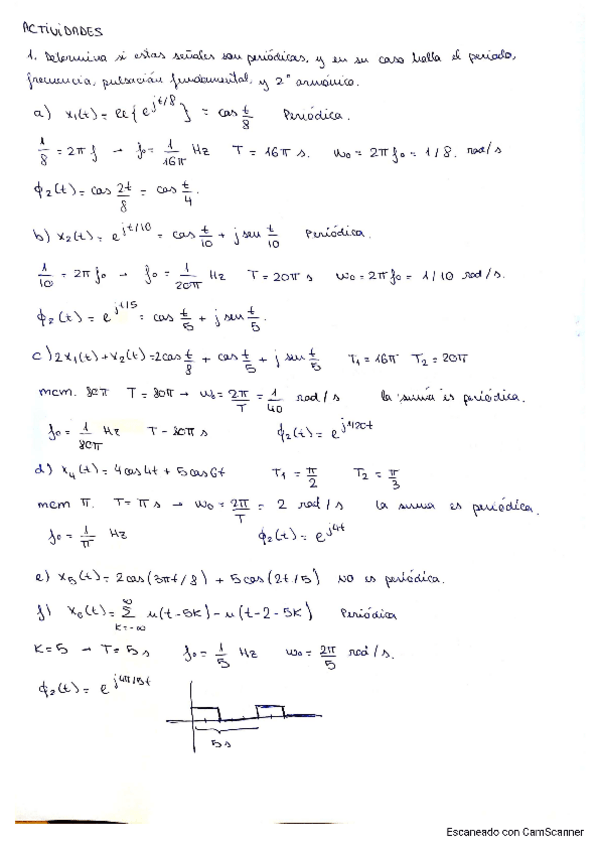 ACTIVIDADES
1. Determina si estas señales son periódicas, y en su caso halla el periodo,
frecuencia, pulsación fundamental, y 2º armónico.
a) x₁(t) = Re{e^{jt/8}} = cos t/8 Periódica.
1/8 = 2π f → f₀ = 1/16π Hz T = 16π s. ω₀ = 2πf₀ = 1/8. rad/s
ϕ₂(t) = cos 2t/8 = cos t/4.
b) x₂(t) = e^{jt/10} = cos t/10 + j sen t/10 Periódica.
1/10 = 2π f₀ → f₀ = 1/20π Hz T = 20π s ω₀ = 2πf₀ = 1/10 rad/s.
ϕ₂(t) = e^{jt/5} = cos t/5 + j sen t/5.
c) 2x₁(t) + x₂(t) = 2cos t/8 + cos t/5 + j sen t/5 T₁ = 16π T₂ = 20π
mcm. 80π T = 80π → ω₀ = 2π/T = 1/40 rad/s la suma es periódica.
f₀ = 1/80π Hz T = 80π s ϕ₂(t) = e^{j1/20t}
d) x₄(t) = 4cos4t + 5cos6t T₁ = π/2 T₂ = π/3
mcm π. T = π s → ω₀ = 2π/T = 2 rad/s la suma es periódica.
f₀ = 1/π Hz ϕ₂(t) = e^{j4t}
e) x₅(t) = 2cos(3πt/8) + 5cos(2t/5) no es periódica.
f) x₆(t) = ∞ Σ k=-∞ u(t-5k) - u(t-2-5k) Periódica
K = 5 → T = 5s f₀ = 1/5 Hz ω₀ = 2π/5 rad/s.
ϕ₂(t) = e^{j4π/5t}
5s
Escaneado con CamScanner